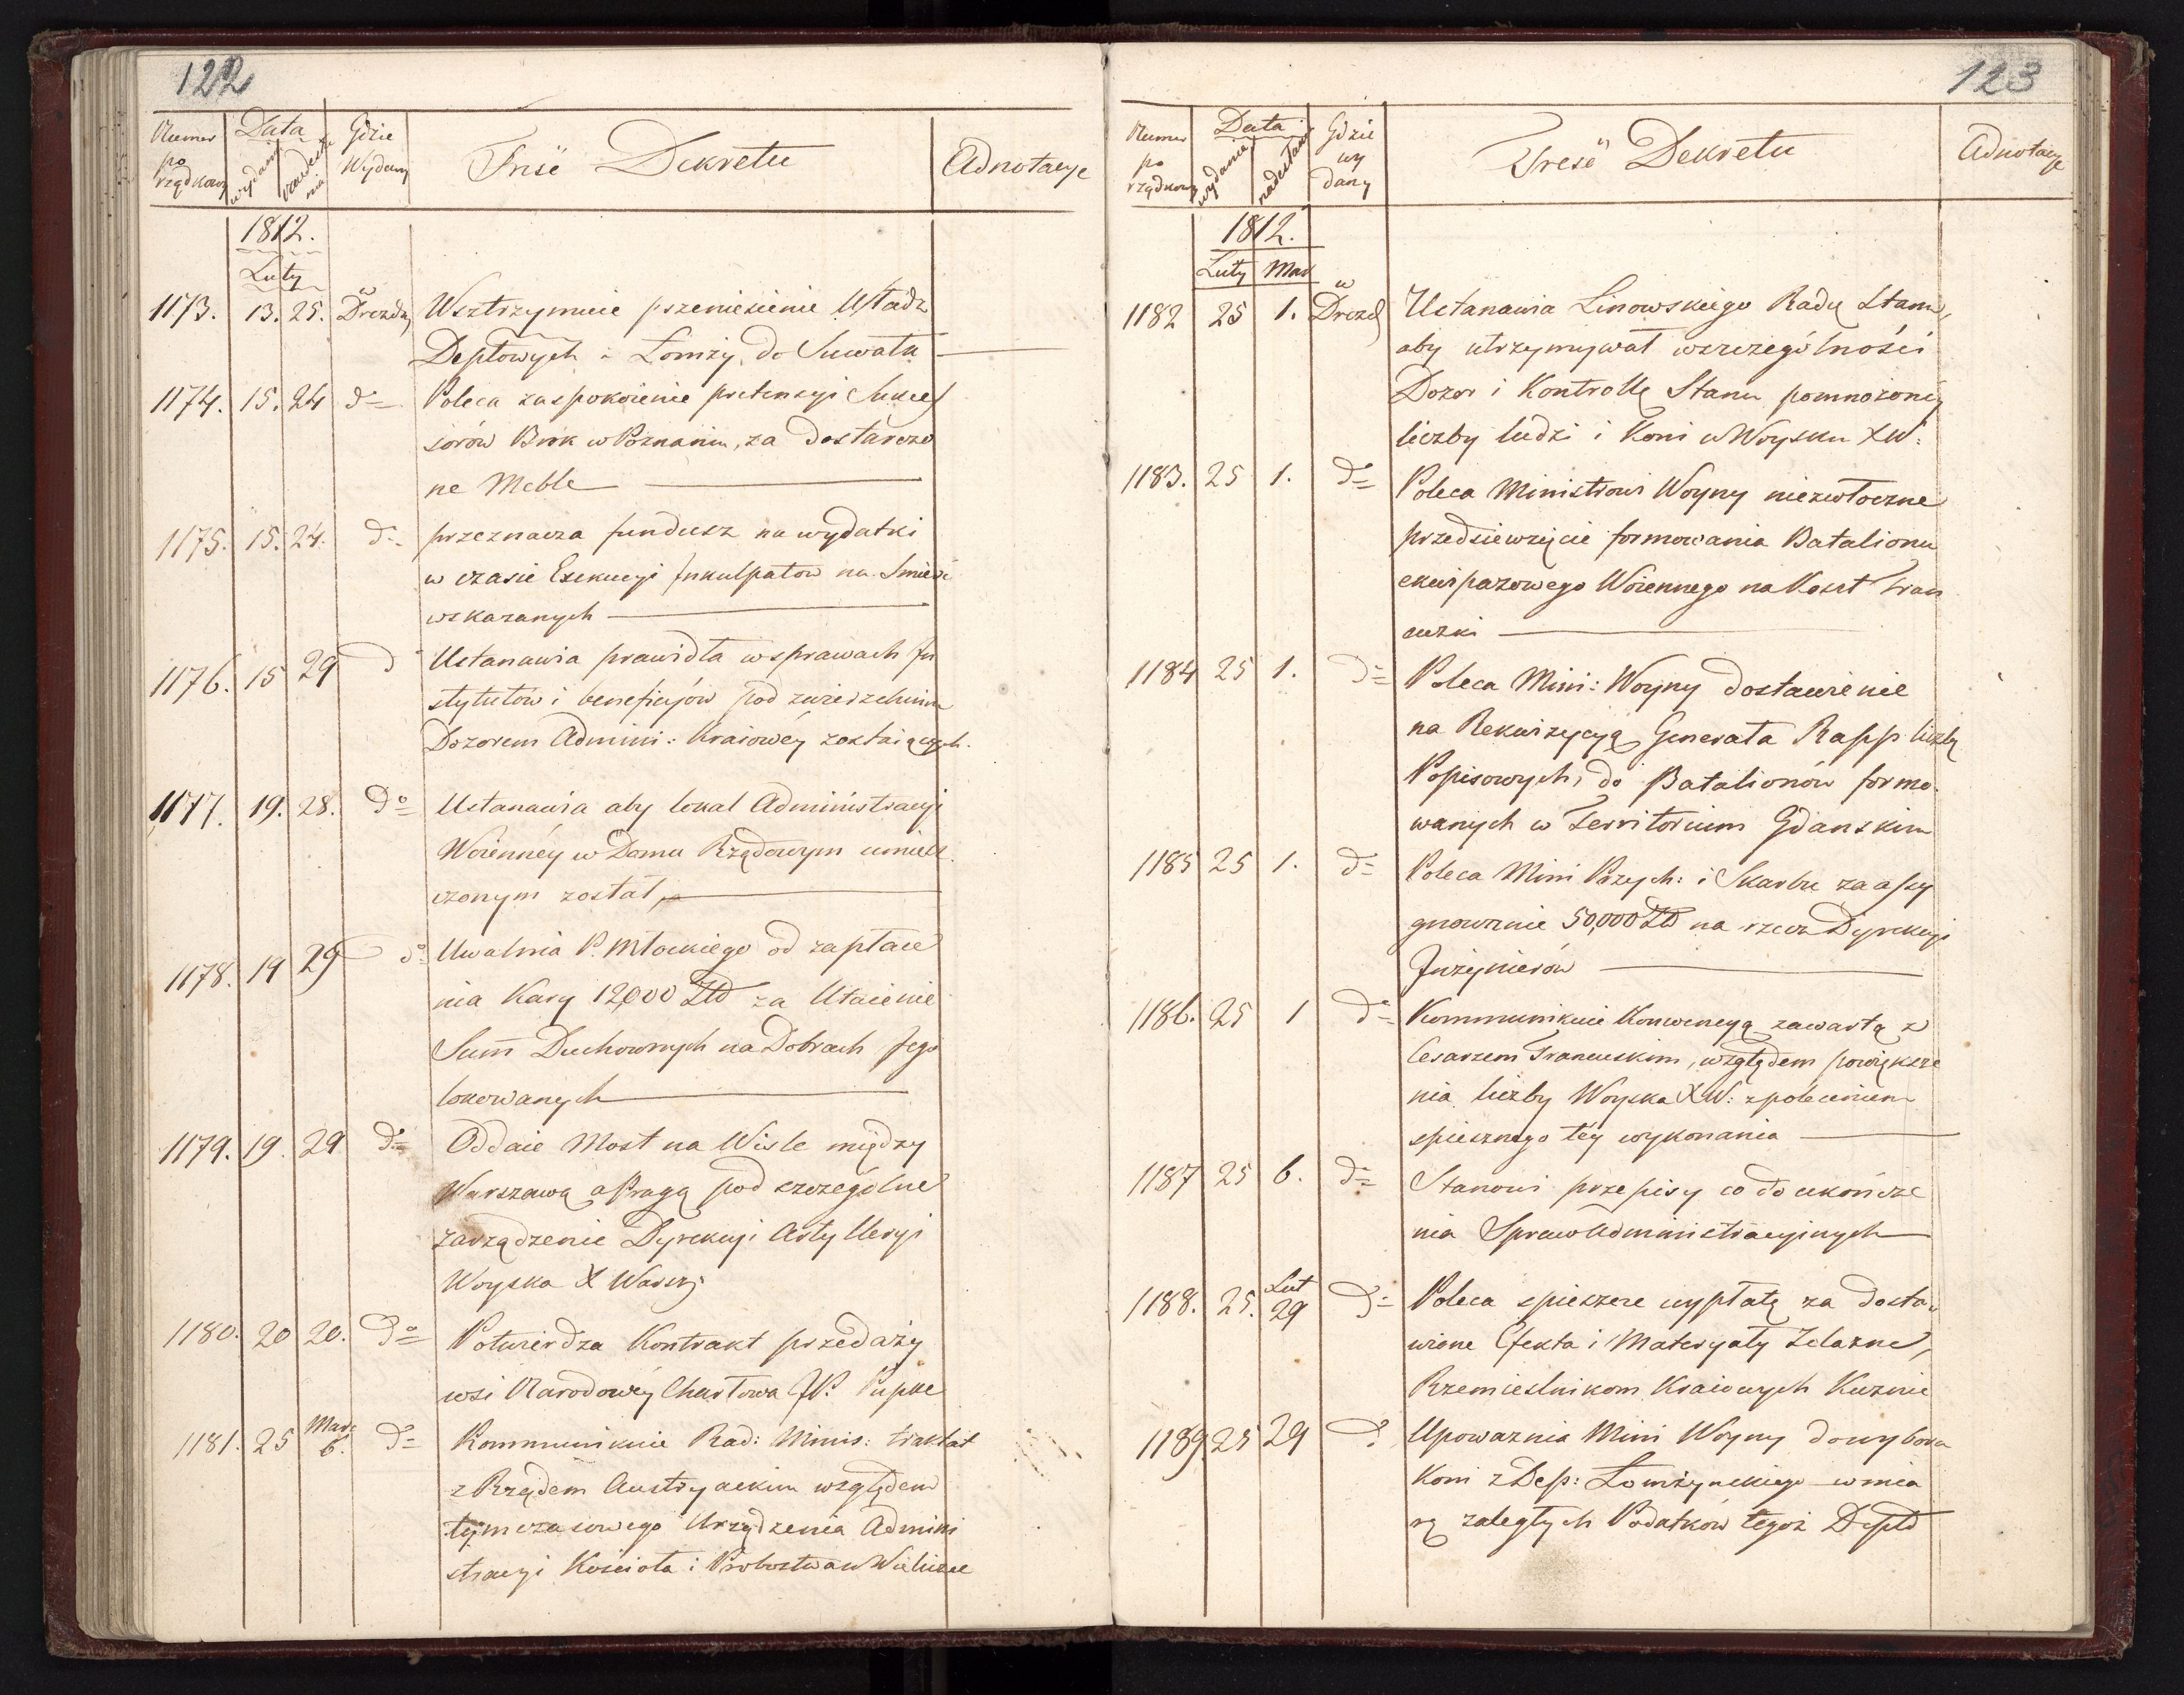 122
Numer
po
rządkowy
Data
wydania
Gdzie
Wydany
Treść Dekretu
Adnotacye
1812.
Luty
1173. 13. 25. w Drezdn Wsztrzymuie przeniesienie Władz
Deptowych z Łomży do Suwałk
1174. 15. 24 do Poleca zaspokoienie pretensyi Sukces
sorów Bok w Poznaniu, za dostarczo
ne Meble
1175. 15. 24. do przeznacza fundusz na wydatki
w czasie Exekucyi Inkulpatow na Smierć
wskazanych
1176. 15 29 do Ustanawia prawidła w sprawach In
stytutów i beneficyów pod zwierzchnim
Dozorem Admini: Kraiowéy zostaiących.
1177. 19. 28. do Ustanawia aby lokal Administracyi
Woienney w Domu Rządowym umiesz
czonym został,
1178. 19 29 do Uwalnia P. Młockiego od zapłace
nia Kary 12,000 Złł za Utaienie
Summ Duchownych na Dobrach Jego
lokowanych
1179. 19. 29 do Oddaie Most na Wisle między
Warszawą a Pragą pod szczegòlne
zarządzenie Dyrekcyi Artylleryi
Woyska X Warsz
1180. 20 20. do Potwierdza Kontrakt przedaży
wsi Narodowéy Chartowa JP. Pupke
1181. 25 Mar: 6. do Kommunikuie Rad: Minis: traktat
z Rządem Austryackim względem
tymczasowego Urządzenia Admini
stracyi Kościoła i Probostwa w Wieliczce
123
Numer
po
rządkowy
Data
wydania
nadesłania
Gdzie
wy
dany
Treść Dekretu
Adnotacye
1812.
Luty Mar
1182 25 1. w Drezd Ustanawia Linowskiego Radcę Stanu,
aby utrzymywał wszczegòlności
Dozor i Kontrollę Stanu pomnożonéy
liczby ludzi i Koni w Woysku XW:
1183. 25 1. do Poleca Ministrowi Woyny niezwłoczne
przedsiewzięcie formowania Batalionu
ekwipazowego Woiennego na Koszt fran
cuzki
1184 25 1. do Poleca Mini: Woyny dostawienie
na Rekwizycyą Generała Rapp liczbę
Popisowych, do Batalionów formo
wanych w Territorium Gdanskim
1185 25 1. do Poleca Mini Przych: i Skarbu zaassy
gnowanie 50,000 Złł na rzecz Dyrekcyi
Inżynierów
1186. 25 1 do Kommunikuie Konwencyą zawartą z
Cesarzem Francuskim, względem powiększe
nia liczby Woyska XW: z poleceniem
spiesznego téy wykonania
1187 25 6. do Stanowi przepisy co do ukończe
nia Spraw Administracyinych
1188. 25. Lut 29 do Poleca spieszne wypłatę za dosta
wione Efekta i Materyały Żelazne,
Rzemieslnikom Kraiowych Kuznic
1189 25 29 do Upoważnia Mini Woyny do wyboru
Koni z Dep: Łomżynskiego w mia
rę zaległych Podatków tegoż Deptu